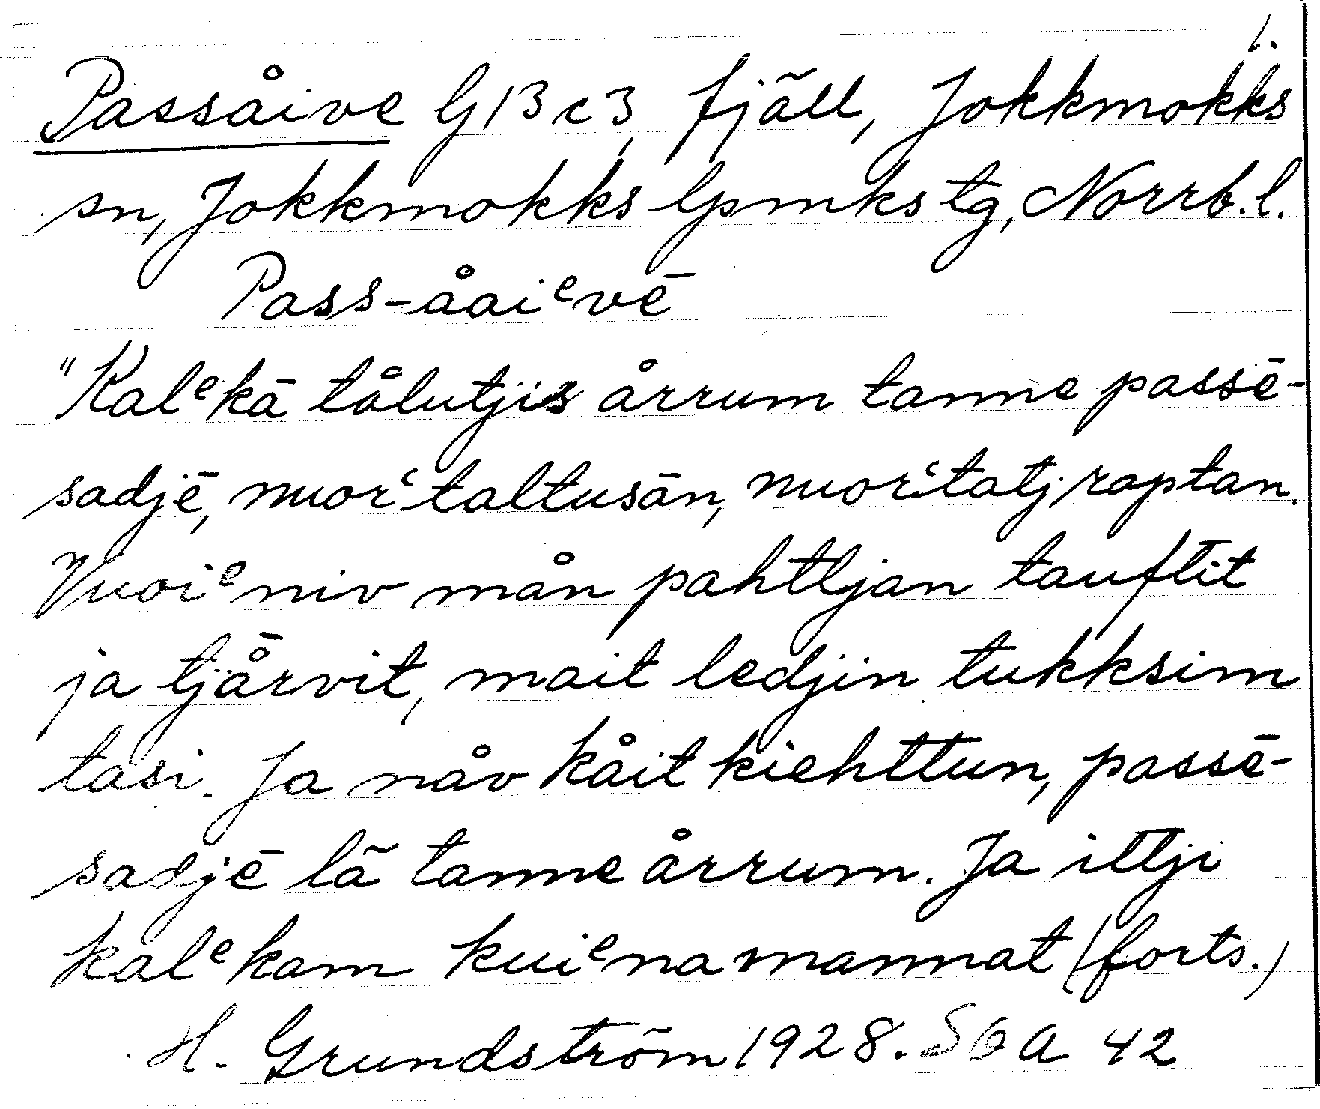 1.
Passåive G13c3, fjäll, Jokkmokks
sn, Jokkmokks lpmks tg, Norrb. l.
Pass-åaiᵉvē
"Kalᵉkā tålutjis årrum tanne passē-
sadjē, nuorʿtaltusān, nuorʿtatj raptan.
Vuoiᵉniv mån pahtljan tauftit
ja tjårvit, mait ledjin tukksim
tasi. Ja nåv kåit kiehttun, passē-
sadjē lā tanne årrum. Ja ittji
kalᵉkam kuiᵉna mannat (forts.)
H. Grundström 1928. SOA 42